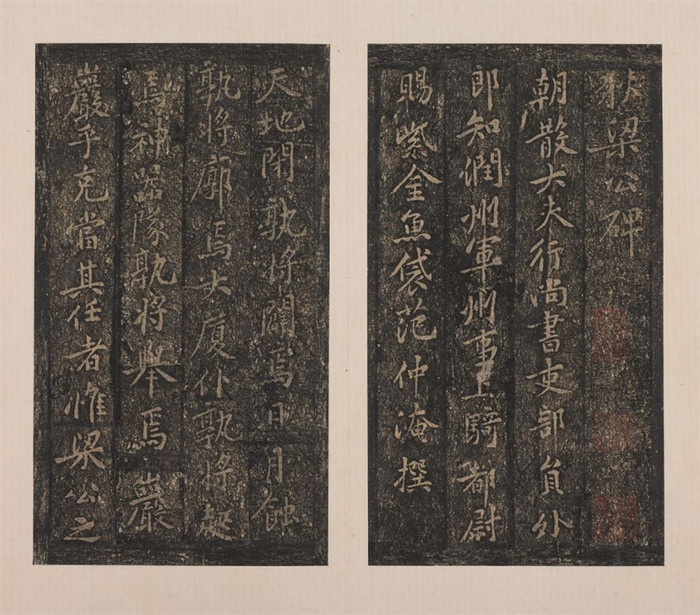 狄梁公碑
朝散大夫行尚書吏部員外
郎知潤州軍州事上騎都尉
賜紫金魚袋范仲淹撰
天地閉孰將闢焉日月蝕
孰將廓焉大廈仆孰將起
焉神器隊孰將舉焉巖
巖乎克當其任者惟梁公之